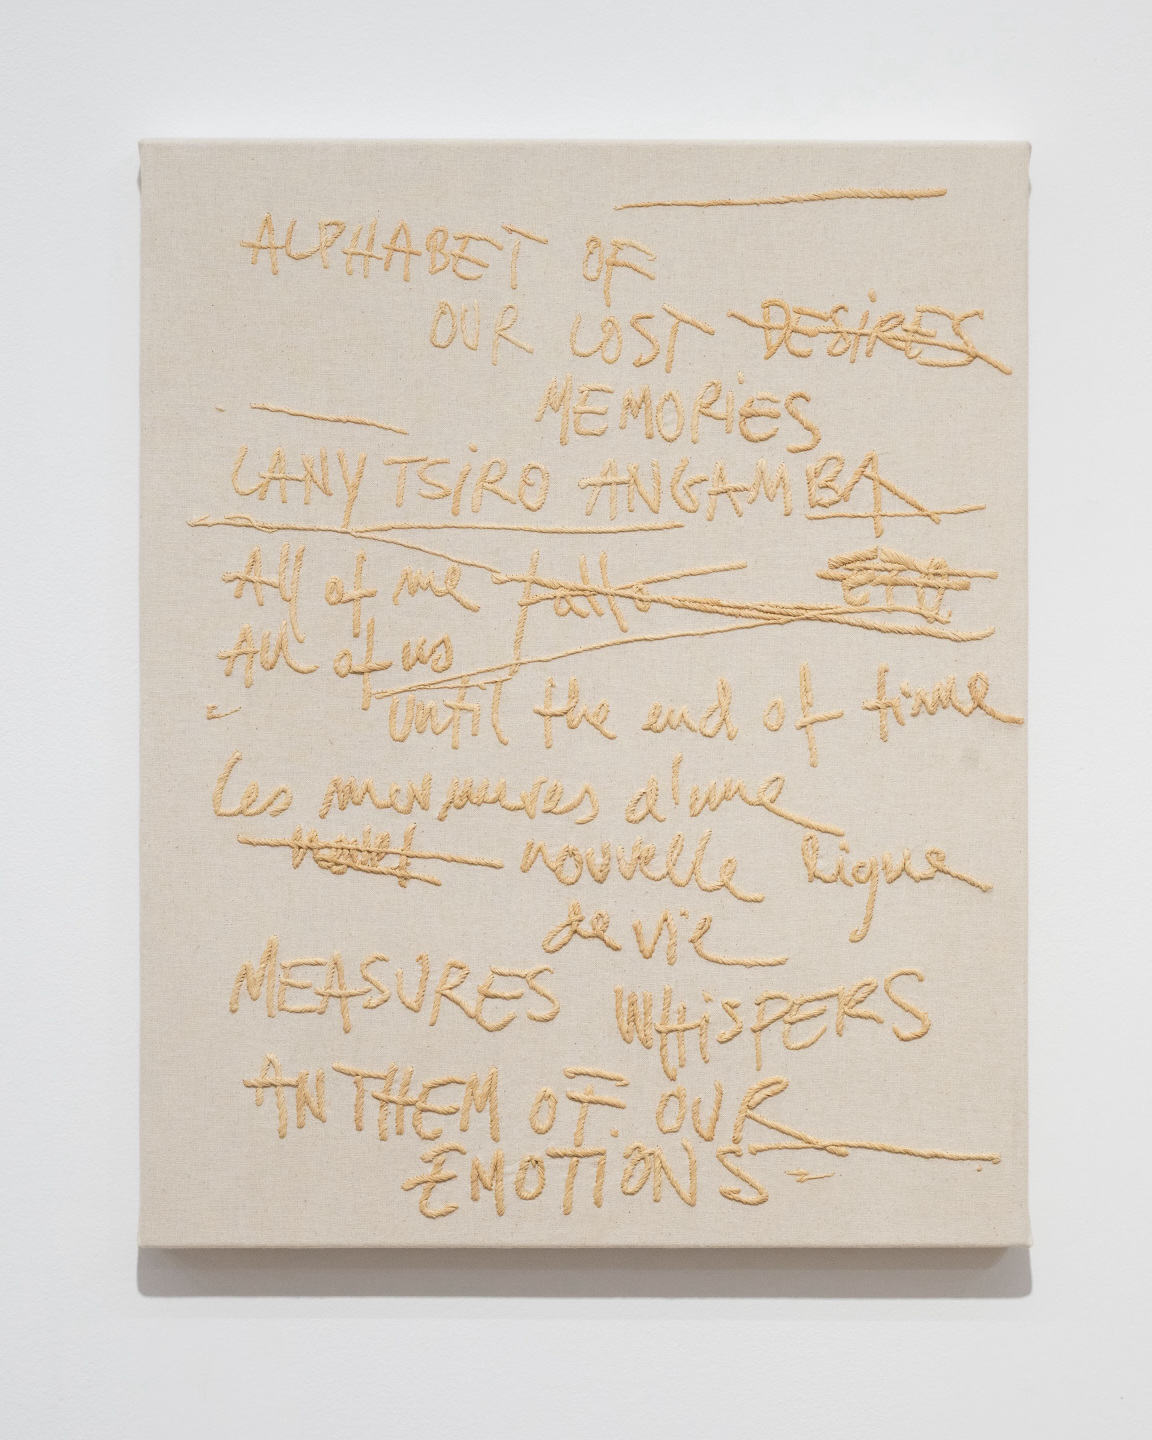 ALPHABET OF
OUR LOST DESIRES
MEMORIES
LANY TSIRO ANGAMBA
All of me
All of us
until the end of time
Les murmures d'une
nouvelle ligne
de vie
MEASURES WHISPERS
ANTHEM OF OUR
EMOTIONS